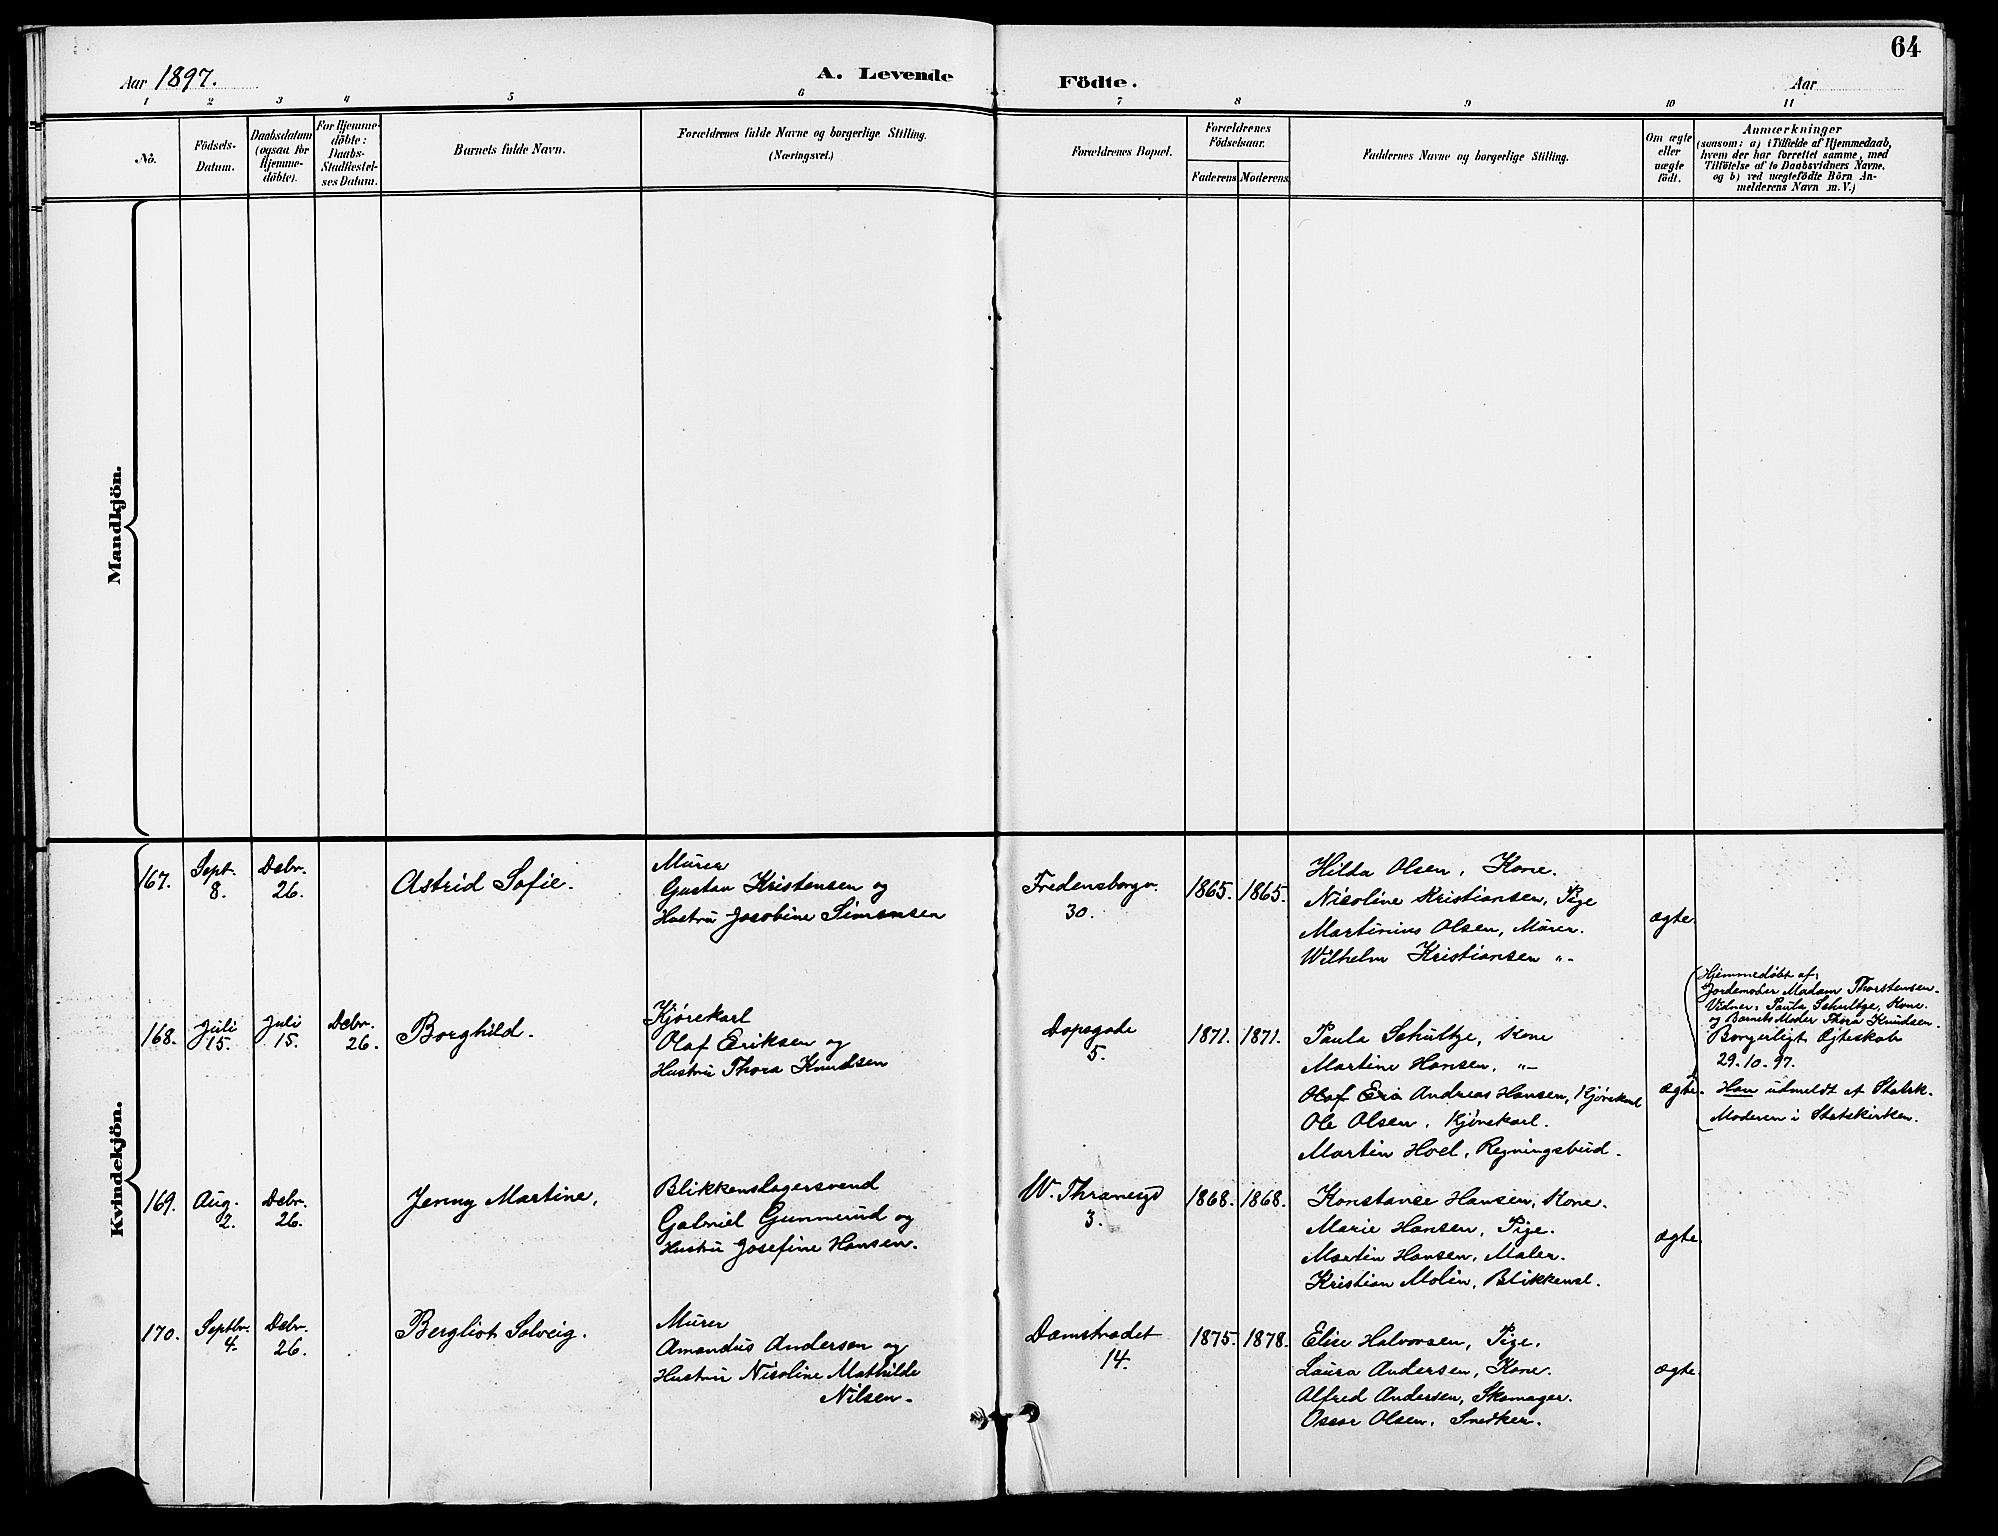 64
Aar 1897.
A. Levende Födte.
Aar
1 2 3 4 5 6 7 8 9 10 11
No.
Födsels-
Datum.
Daabsdatum
(ogsaa for
Hjemme-
döbte).
For Hjemme-
döbte:
Daabs-
Stadfæstel-
ses Datum.
Barnets fulde Navn.
Forældrenes fulde Navne og borgerlige Stilling.
(Næringsvei.)
Forældrenes Bopæl.
Forældrenes
Födselsaar.
Faderens Moderens
Faddernes Navne og borgerlige Stilling.
Om ægte
eller
uægte
födt.
Anmærkninger
(saasom: a) i Tilfælde af Hjemmedaab,
hvem der har forrettet samme, med
Tilföielse af to Daabsvidners Navne,
og b) ved uægtefödte Börn An-
melderens Navn m. V.)
Mandkjön.
Kvindekjön.
167.
Sept.
8.
Debr.
26.
Astrid Sofie.
Murer
Gustav Kristensen og
Hustru Jacobine Simensen
Fredensborgv.
30.
1865. 1865.
Hilda Olsen, Kone.
Nicoline Kristiansen, Pige
Martinius Olsen, Murer.
Wilhelm Kristiansen "-
ægte.
168.
Juli
15.
Juli
15.
Debr.
26.
Borghild.
Kjørekarl
Olaf Eriksen og
Hustru Thora Knudsen
Dopsgade
5.
1871. 1871.
Paula Schultze, Kone
Martine Hansen, "-
Olaf Andreas Hansen, Kjørekarl
Ole Olsen, Kjørekarl.
Martin Hoel, Regningsbud.
ægte.
Hjemmedøbt af:
Jordemoder Madam Thorstensen.
Vidner: Paula Schultze, Kone.
og Barnets Moder Thora Knudsen.
Borgerligt Ægteskab
29.10.97.
Han udmeldt af Statsk.
Moderen i Statskirken.
169.
Aug.
2.
Debr.
26.
Jenny Martine.
Blikkenslagersvend
Gabriel Gunnerud og
Hustru Josefine Hansen.
W. Thranesgd
3.
1868. 1868.
Konstanse Hansen, Kone.
Marie Hansen, Pige.
Martin Hansen, Maler.
Kristian Molin, Blikkensl.
ægte.
170.
Septbr.
4.
Debr.
26.
Bergliot Solveig.
Murer
Amandus Andersen og
Hustru Nicoline Mathilde
Nilsen.
Damstradet
14.
1875. 1878.
Elise Halvorsen, Pige.
Laura Andersen, Kone.
Alfred Andersen, Skomager.
Oscar Olsen, Snedker.
ægte.